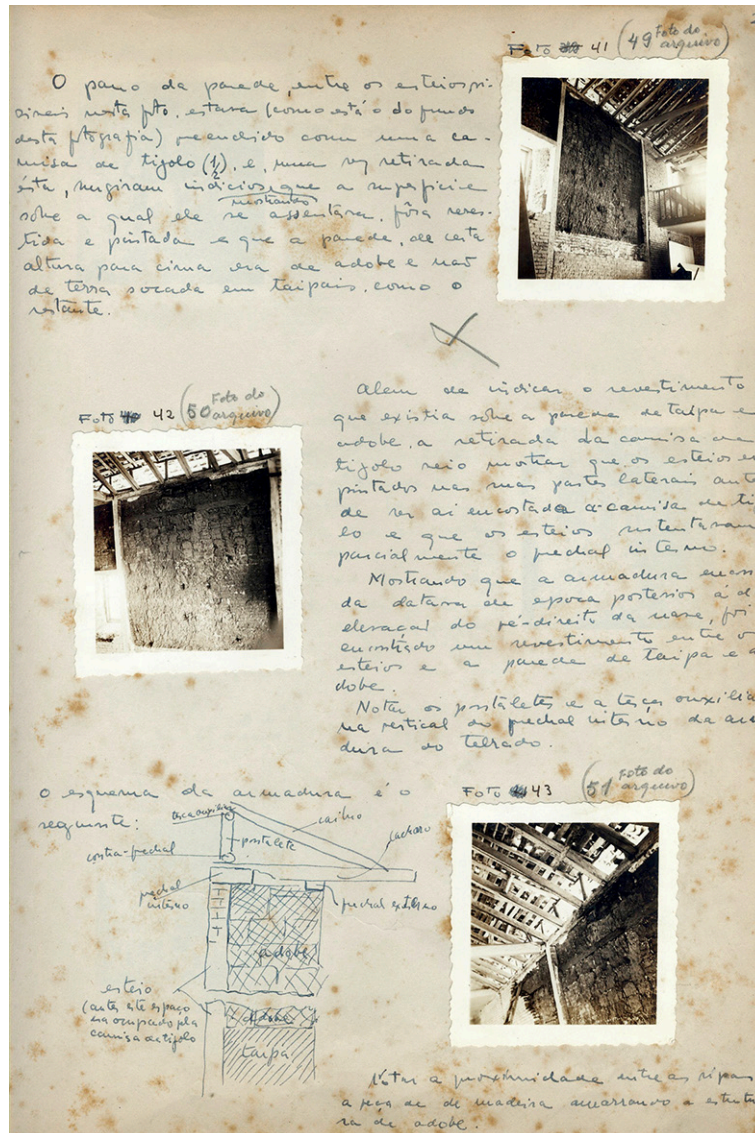 Foto 41 (49 Foto do arquivo)
O pano da parede, entre os esteios vi-
síveis nesta foto, estava (como está o do fundo
desta fotografia) preenchido com uma ca-
misa de tijolo (1/2) e, uma vez retirada
esta, surgiram indícios mostrando que a superfície
sobre a qual ele se assentara, fôra reves-
tida e pintada e que a parede, de certa
altura para cima era de adobe e não
de terra socada em taipais, como o
restante.
Foto 42 (50 Foto do arquivo)
Alem de indicar o revestimento
que existia sôbre a parede de taipa e
adobe, a retirada da camisa de
tijolo veio mostrar que os esteios
pintados nas suas partes laterais
de ser aí encostada a camisa de ti
lo e que os esteios sustentavam
parcialmente o frechal interno.
Mostrando que a armadura
da datava de epoca posterior á
elevação do pé-direito da nave, foi
encontrado um revestimento entre
esteios e a parede de taipa e a
dobe.
Notar os postaletes e a terça auxilia
na vertical do frechal interno da
dura do telhado.
O esquema da armadura é o
seguinte:
terça auxiliar
caibro
postalete
cachorro
contra-frechal
frechal
interno
frechal externo
adobe
esteio
(antes este espaço
era ocupado pela
camisa de tijolo
adobe
taipa
Foto 43 (51 Foto do arquivo)
Notar a proximidade entre as ripas
a peça de madeira amarrando a estrutu
ra de adobe.